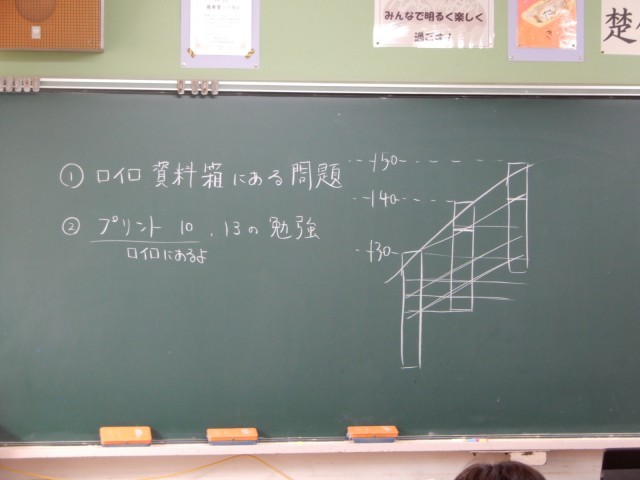 みんなで明るく楽しく
過ごす！
楚
① ロイロ 資料箱にある問題
② プリント 10 . 13の勉強
ロイロにあるよ
150
140
130